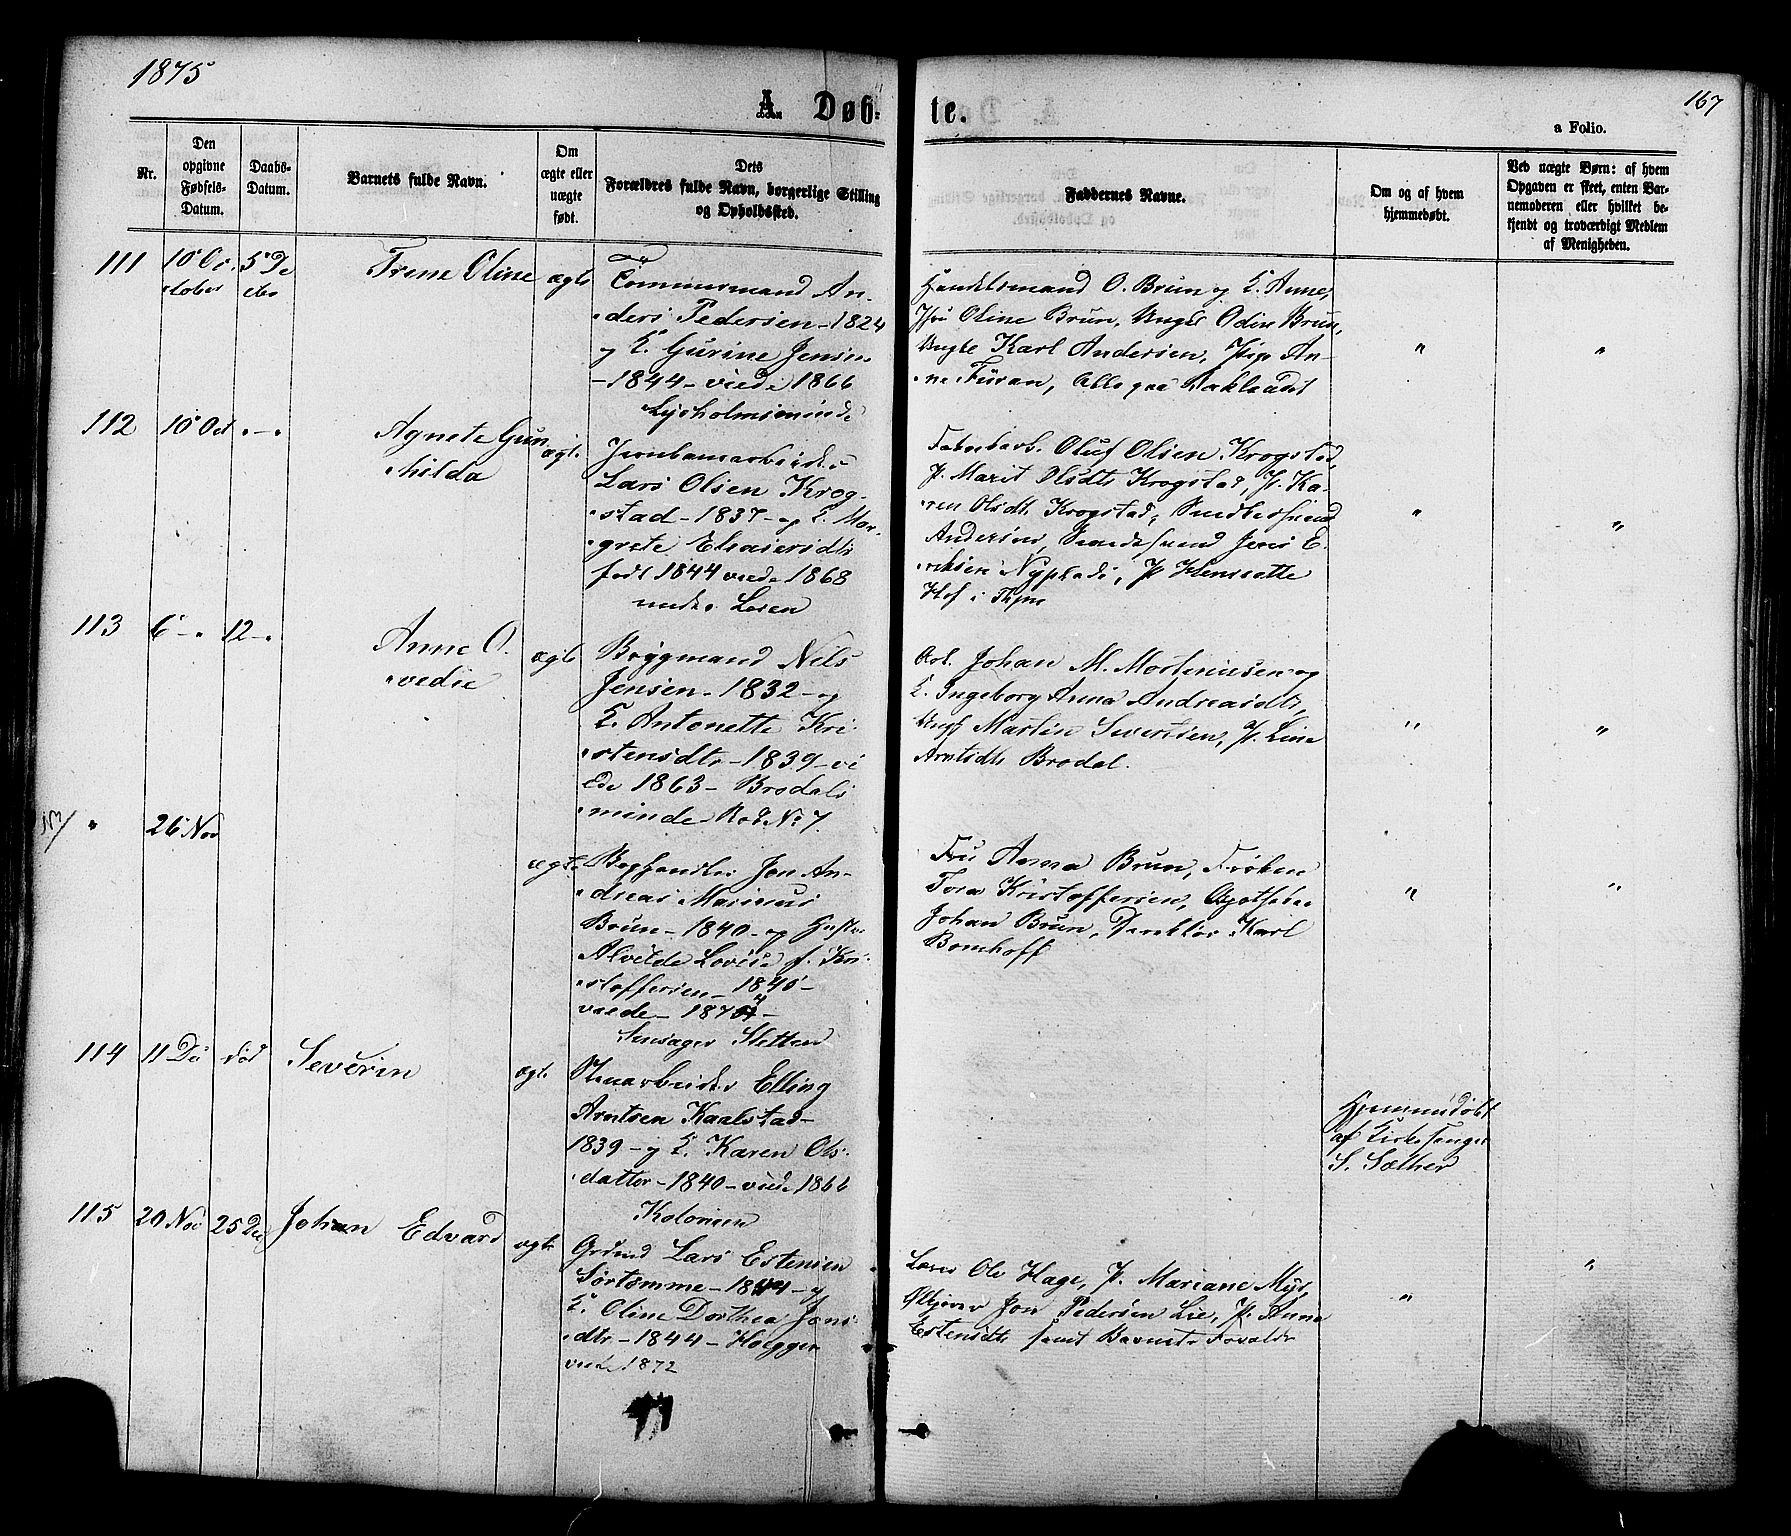 1875
167
A. Døb-
te.
a Folio.
Nr.
Den
opgivne
Fødsels-
Datum.
Daabs-
Datum.
Barnets fulde Navn.
Om
ægte eller
uægte
født.
Dets
Forældres fulde Navn, borgerlige Stilling
og Opholdssted.
Faddernes Navne.
Om og af hvem
hjemmedøbt.
Ved uægte Børn: af hvem
Opgaven er skeet, enten Bar-
nemoderen eller hvilket be-
kjendt og troværdigt Medlem
af Menigheden.
111
10 Oc
tober
5 De
cbr
Trine Oline
ægte
Tømmermand An-
ders Pedersen - 1824
og E. Gurine Jensen
- 1844 - viede 1866
Lysholmsminde
Handelsmand O. Brun og E. Anne,
Oline Brun, Ungk Odin Brun,
Ungk Karl Andersen, Pige An-
ne Furan, alle paa Baklandet
"
"
112
10 Oct
" - "
Agnete Gun
hilda
ægte
Jernbanearbeider
Lars Olsen Krog-
stad - 1837 - og E. Mar-
grete Eliasersdtr
født 1844 viede 1868
under Leren
Oluf Olsen Krogstad,
P. Marit Olsdtr Krogstad, P. Ka-
ren Olsdtr Krogstad, Smedesvend
Andersen, Smedesvend Jens E-
riksen P. Henriette
Hof i
"
"
113
6 - "
12 - "
Anne O.
vedie
ægte
Bryggmand Nels
Jensen - 1832 - og
E. Antonette Kri
stensdtr - 1839 - vi
ede 1863 - Brodals
minde Rod. No 7.
Arb. Johan M. Mortensen og
E. Ingeborg Anna Andreasdtr,
Ungk Martin Sivertsen, P. Line
Arntsdtr Brodal.
"
"
"
26 Nov
ægte
Boghandler Jon An-
dreas Marinus
Brun - 1840 - og Hustru
Alvilde Lovise f. Kri-
stoffersen - 1845 -
viede - 1874 -
Sletten
Fru Anna Brun, Frøken
Tora Kristoffersen, Apotheker
Johan Brun, Direktør Karl
Bomhoff
"
"
114
11 De
død
Severin
ægte
Stenarbeider Elling
Arntsen Kaalstad -
1839 - og E. Karen Ols-
datter - 1840 - viede 1866
Kolonien
Hjemmedøbt
af Kirkesanger
S. Sæther
115
20 Nov
25 Dec
Johan Edvard
ægte
Grdmd Lars Estensen
Sørtømme - 1844 - og
E. Oline Dorthea Jons
dtr - 1844 - Hoeggen
viede 1872
Lærer Ole Hage, P. Mariane Myr,
Jon Pedersen Lie, P. Anne
Estensdtr samt Barnets Forældre
"
"